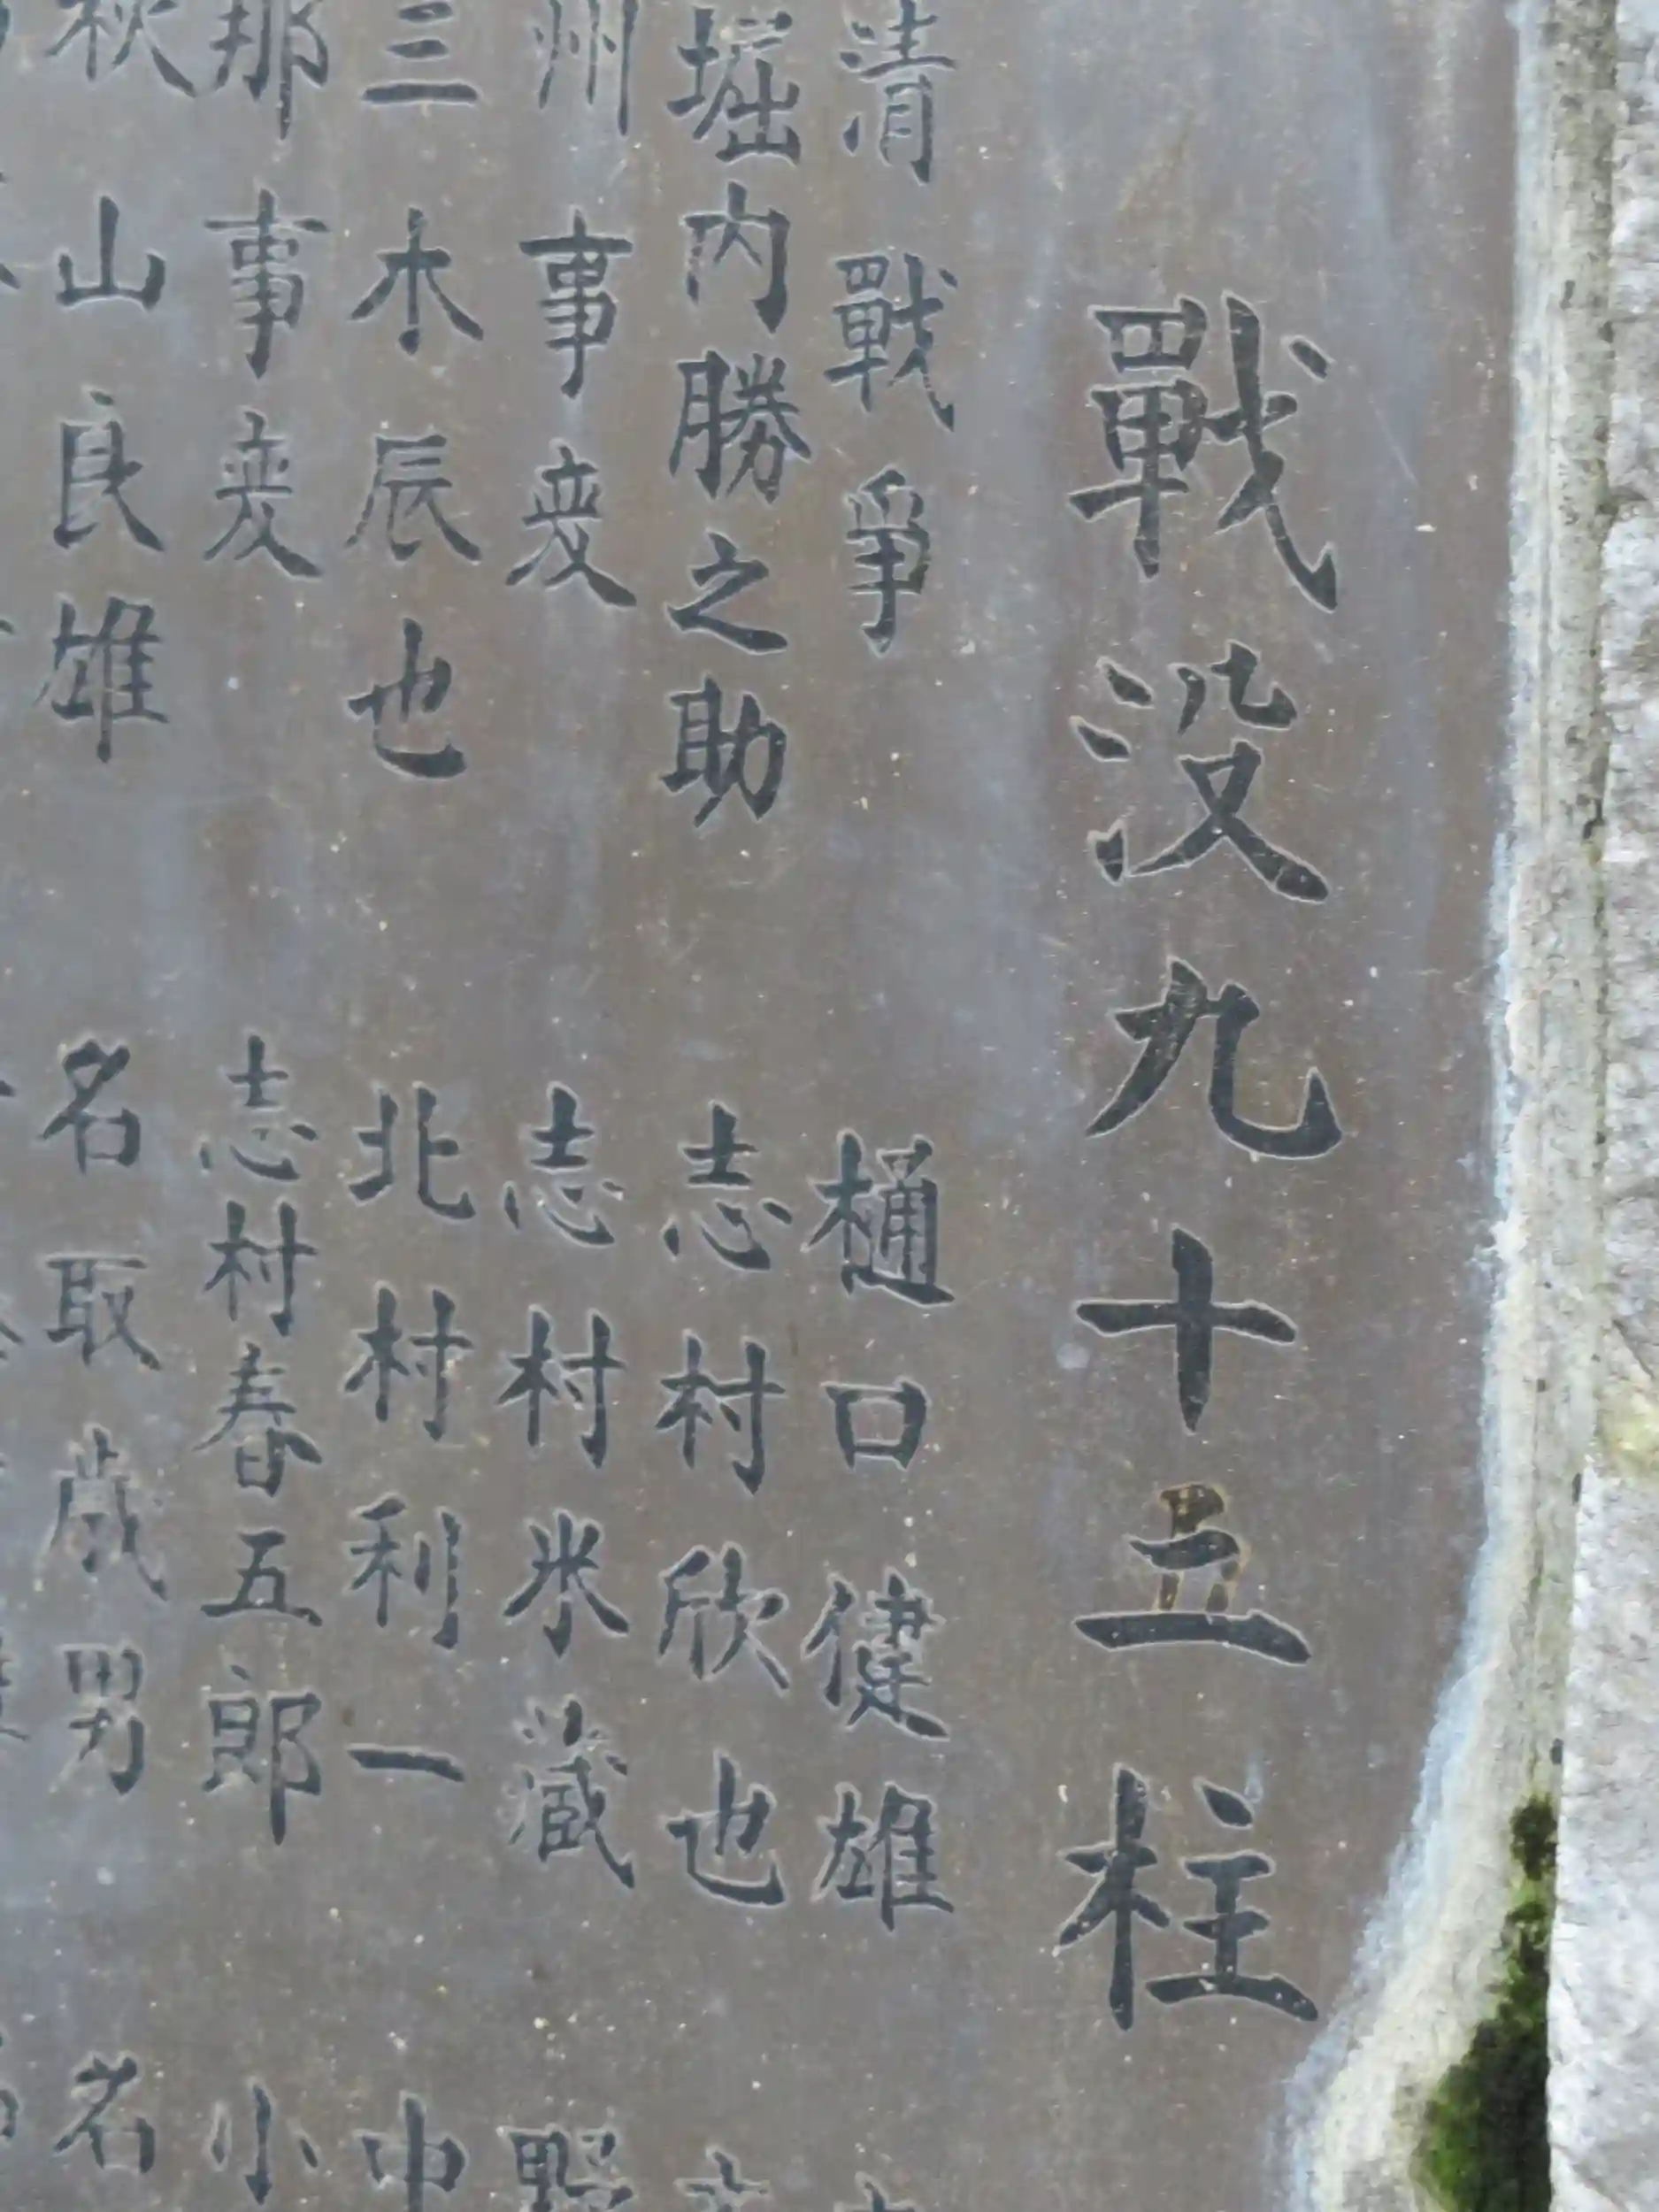 戰没九十五柱
清戰爭 樋口健雄
堀内勝之助 志村欣也
州事変 志村米藏 野
三木辰也 北村利一 中
那事変 志村春五郎 小
秋山良雄 名取歳男 名